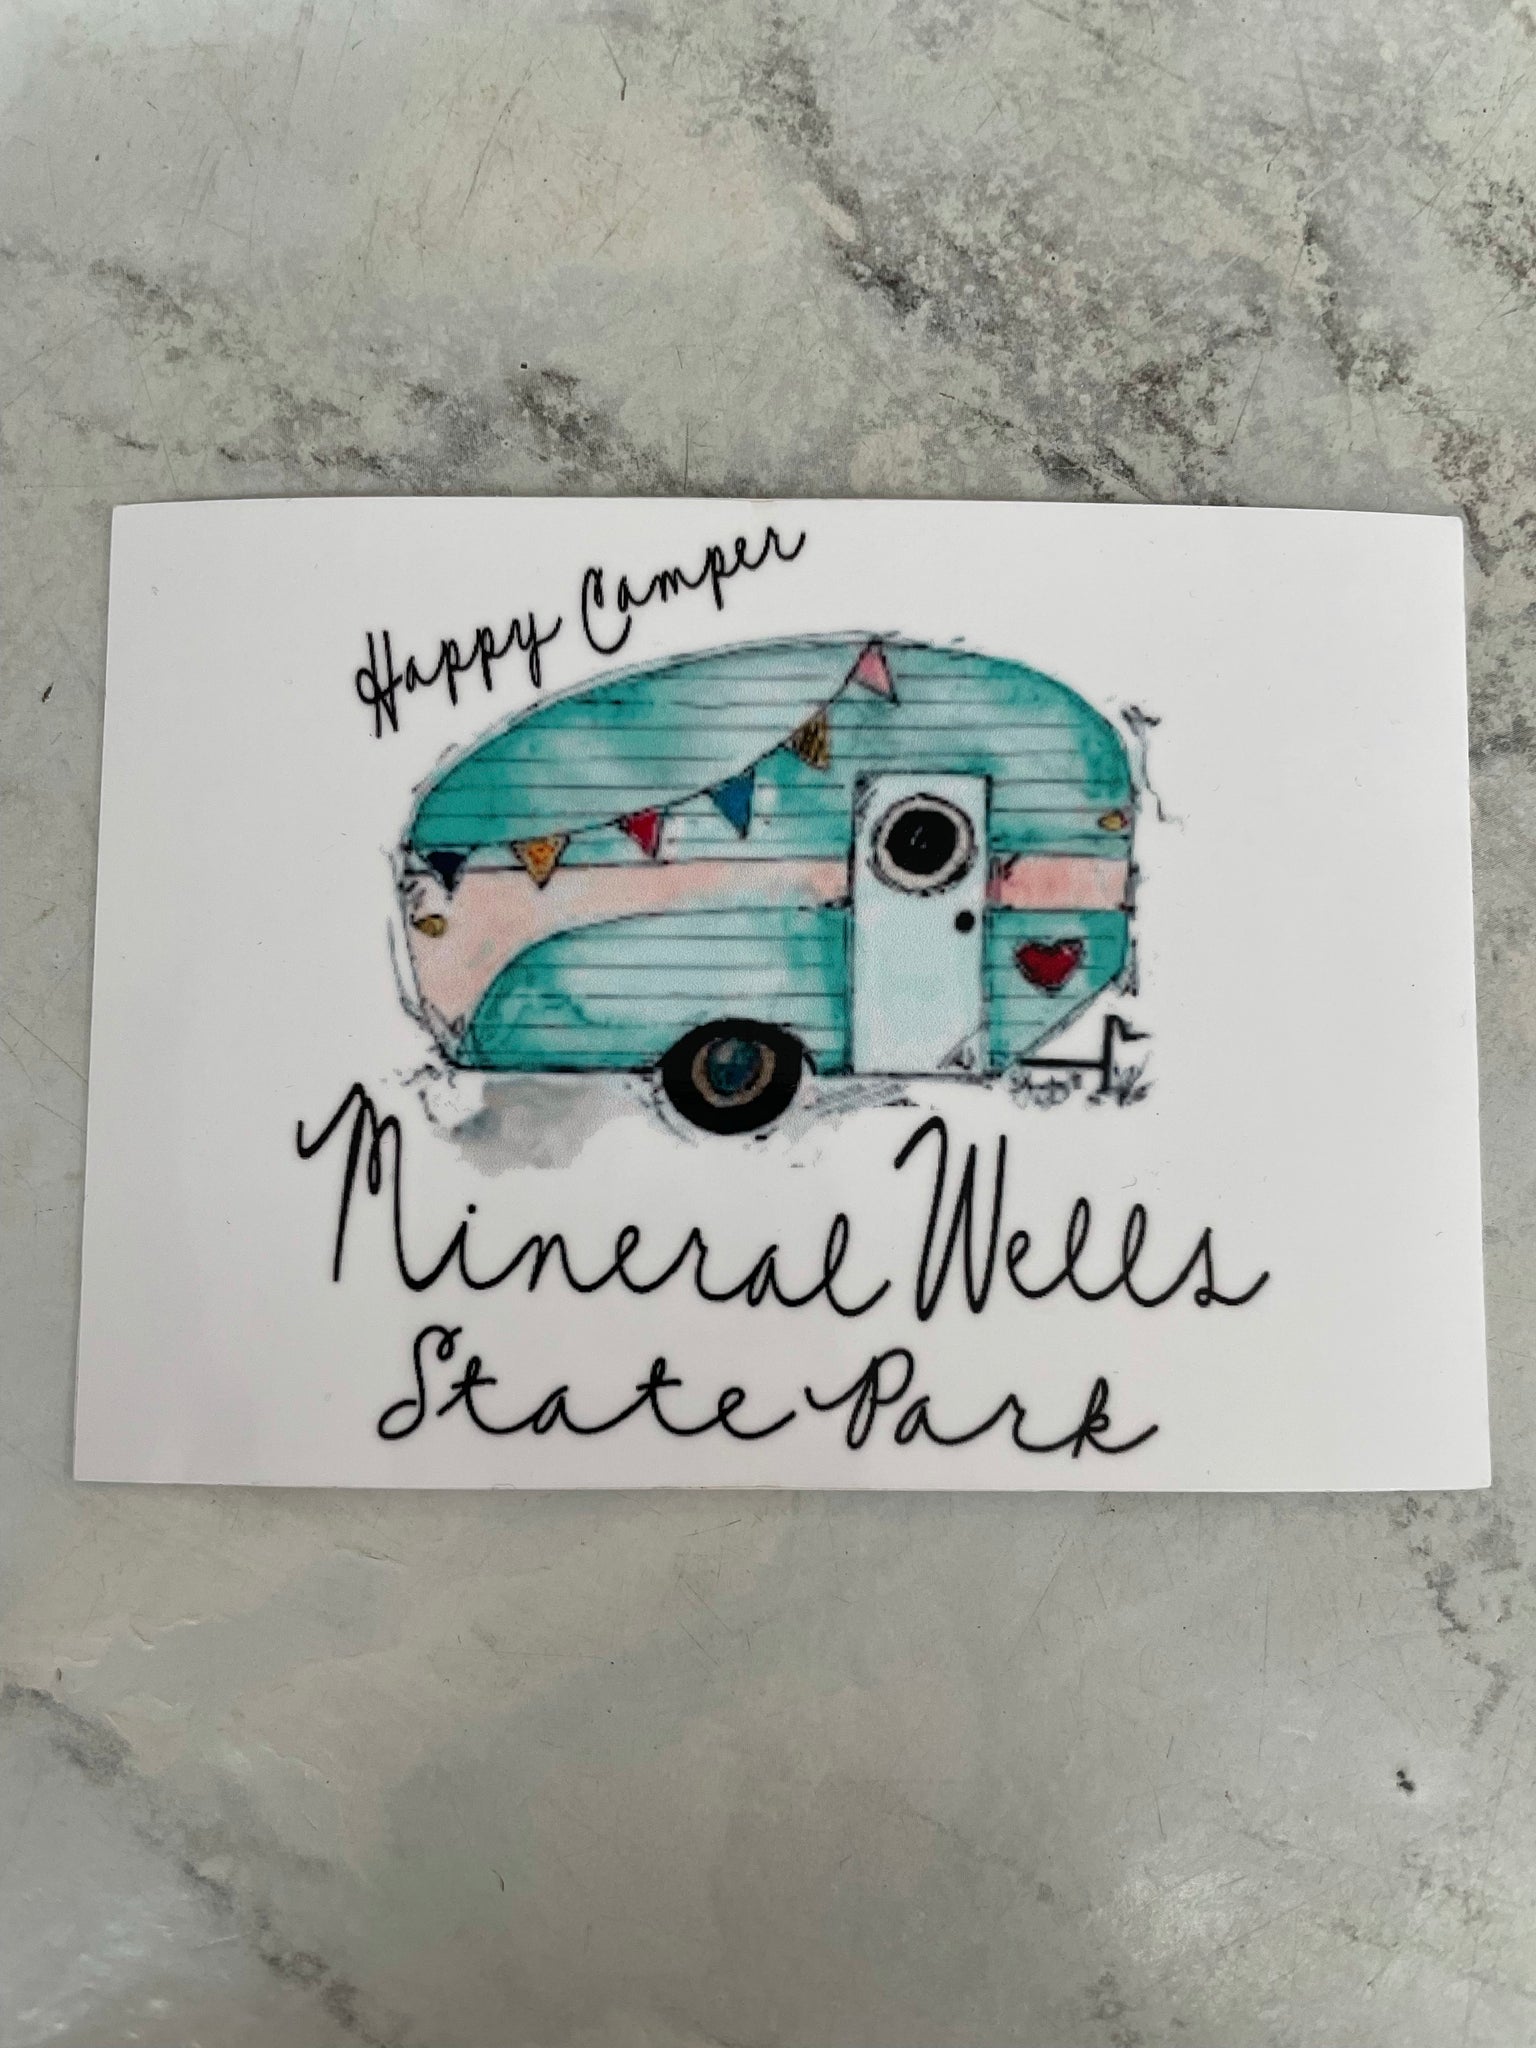 Happy Camper
Mineral Wells
State Park